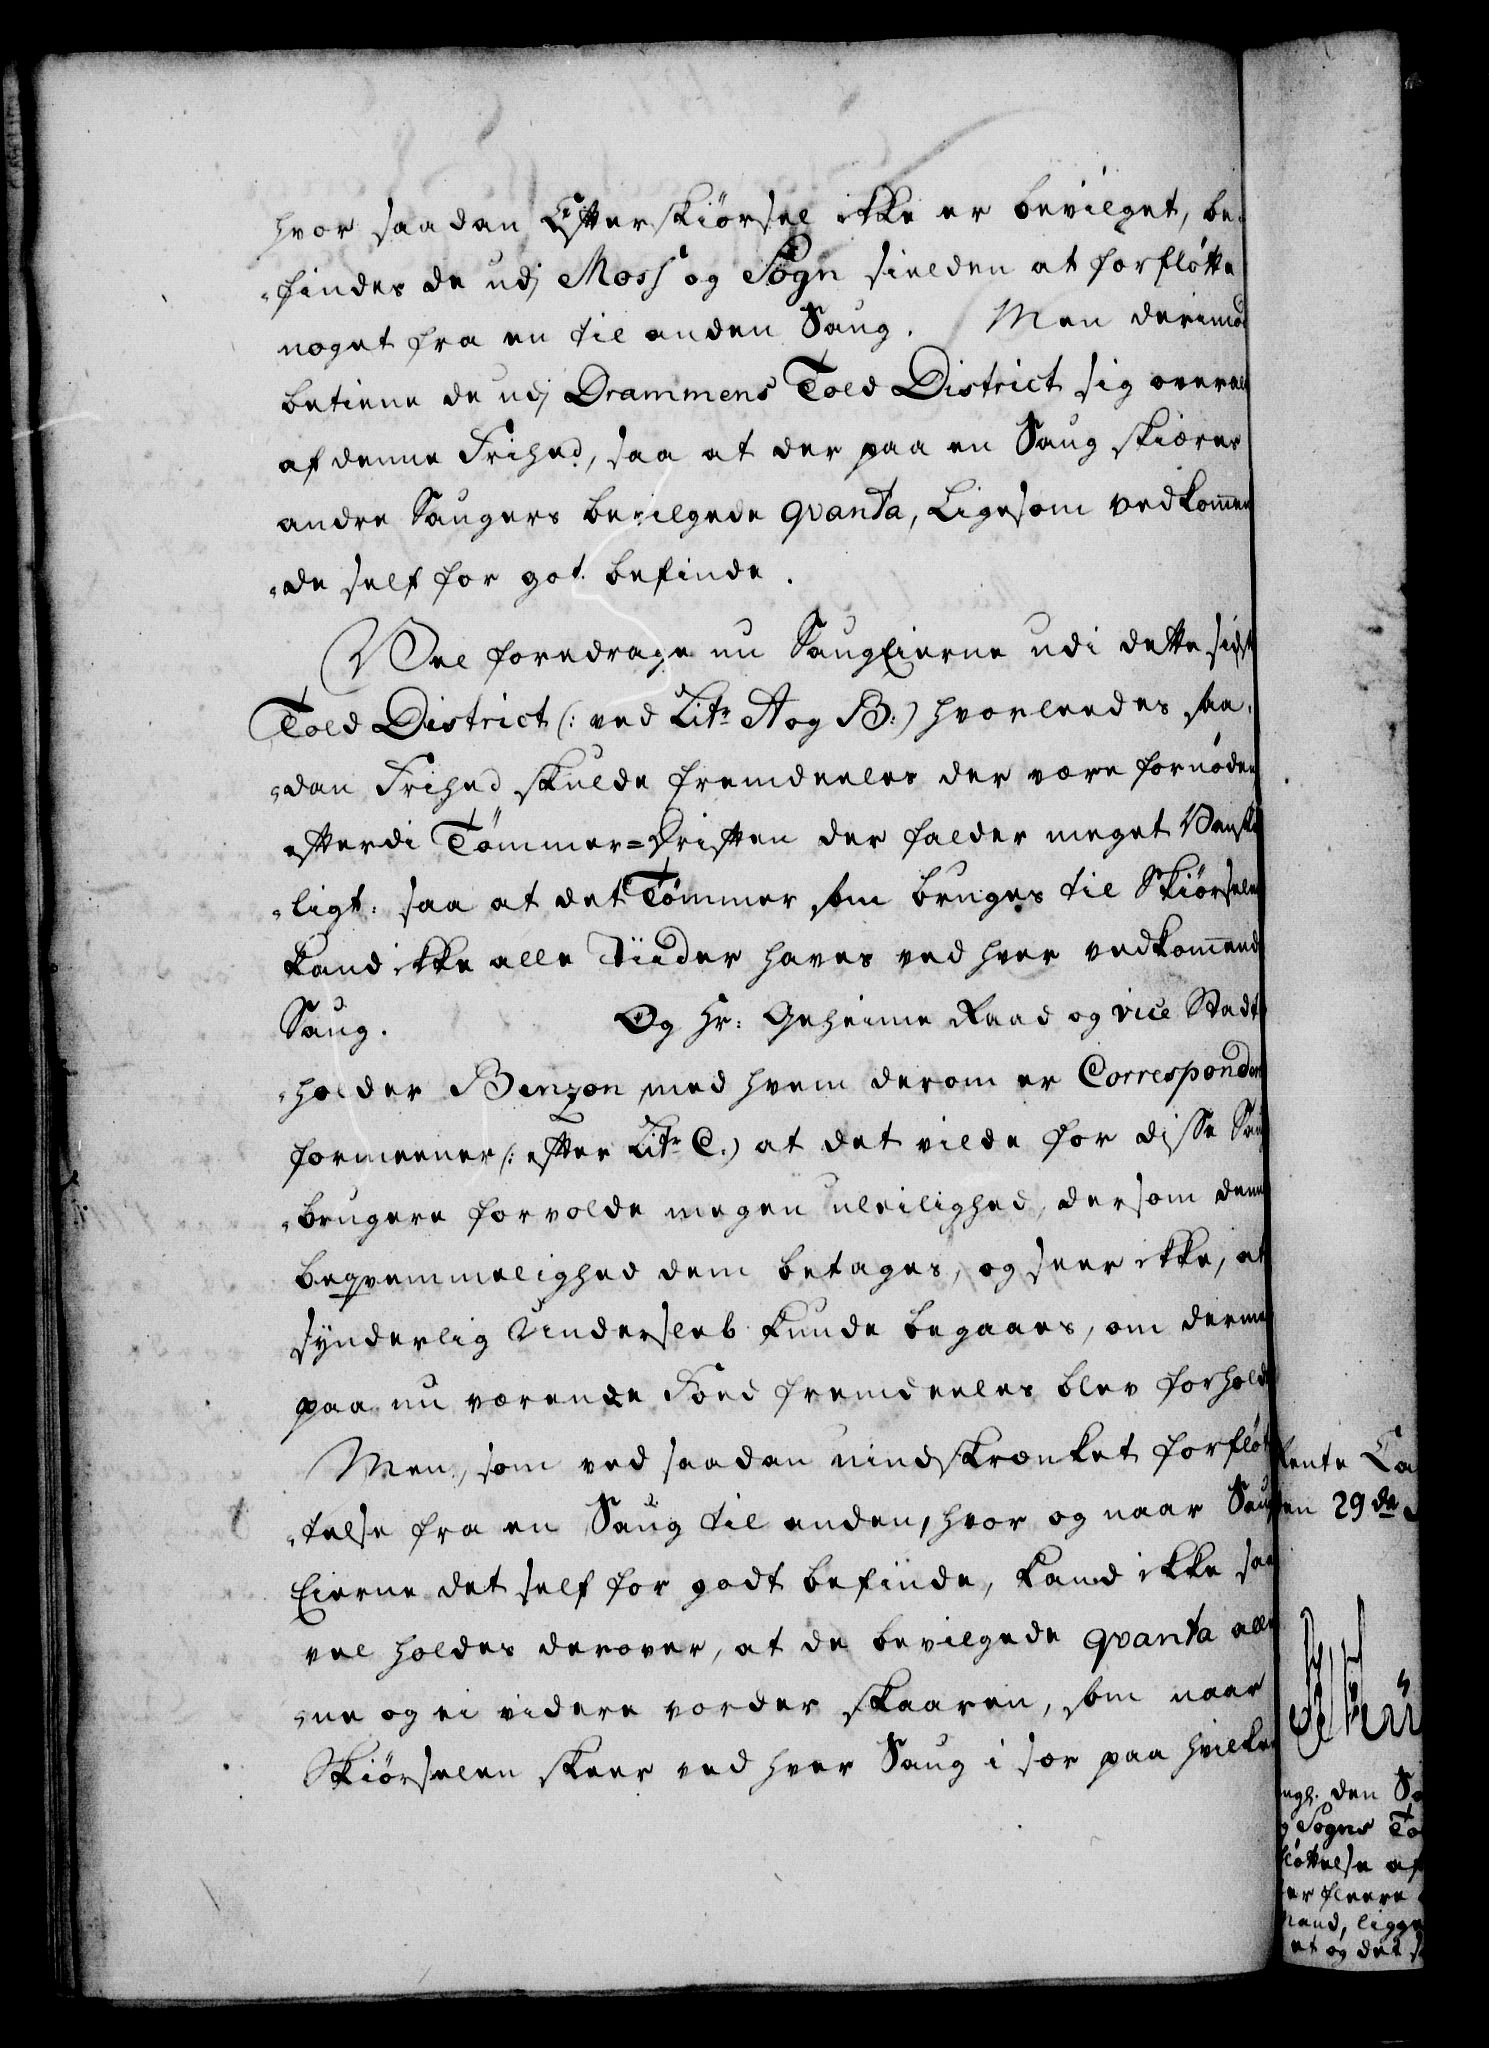 hvor saadan Efterskiørsel ikke er bevilget, be-
-findes de udj Moss og Sogn sielden at forfløtte
noget fra en til anden Saug. Men derimod
betiene de udj Drammens Told District sig overalt
af denne Frihed, saa at der paa en Saug skiæres
andre Saugers bevilgede qvanta, Ligesom vedkommen
-de self for got befinde.
Vel foredrage nu SaugEierne udi dette sidste
Told District (: ved Litr A og B :) hvorleedes saa-
-dan Frihed skulde fremdeeles der være fornøden
efterdi Tømmer=Driften der falder meget Vanske
-ligt: saa at det Tømmer som bruges til Skiørselen
kand ikke alle Tiider haves ved hver vedkommende
Saug. Og Hr: Geheime Raad og vice Stadt
-holder Benzon med hvem derom er Correspondert
formeener (: efter Litr C.) at det vilde for disse Saug
-brugere forvolde megen uleilighed, dersom denne
beqvemmelighed dem betages, og seer ikke, at
synderlig Undersleb kunde begaaes, om dermed
paa nu værende Foed fremdeeles blev forholdt
Men, som ved saadan uindskrænket forfløt
-telse fra en Saug til anden, hvor og naar Saug
Eierne det self for godt befinde, kand ikke saa
vel holdes derover, at de bevilgede qvanta alle
-ne og ei videre vorder skaaren, som naar
Skiørselen skeer ved hver Saug i sær paa hvilken
Rente Ca
en 29de
engl. den Sa
og Sogns To
fløttelse af
er fleere
Mand, ligge
et og det s